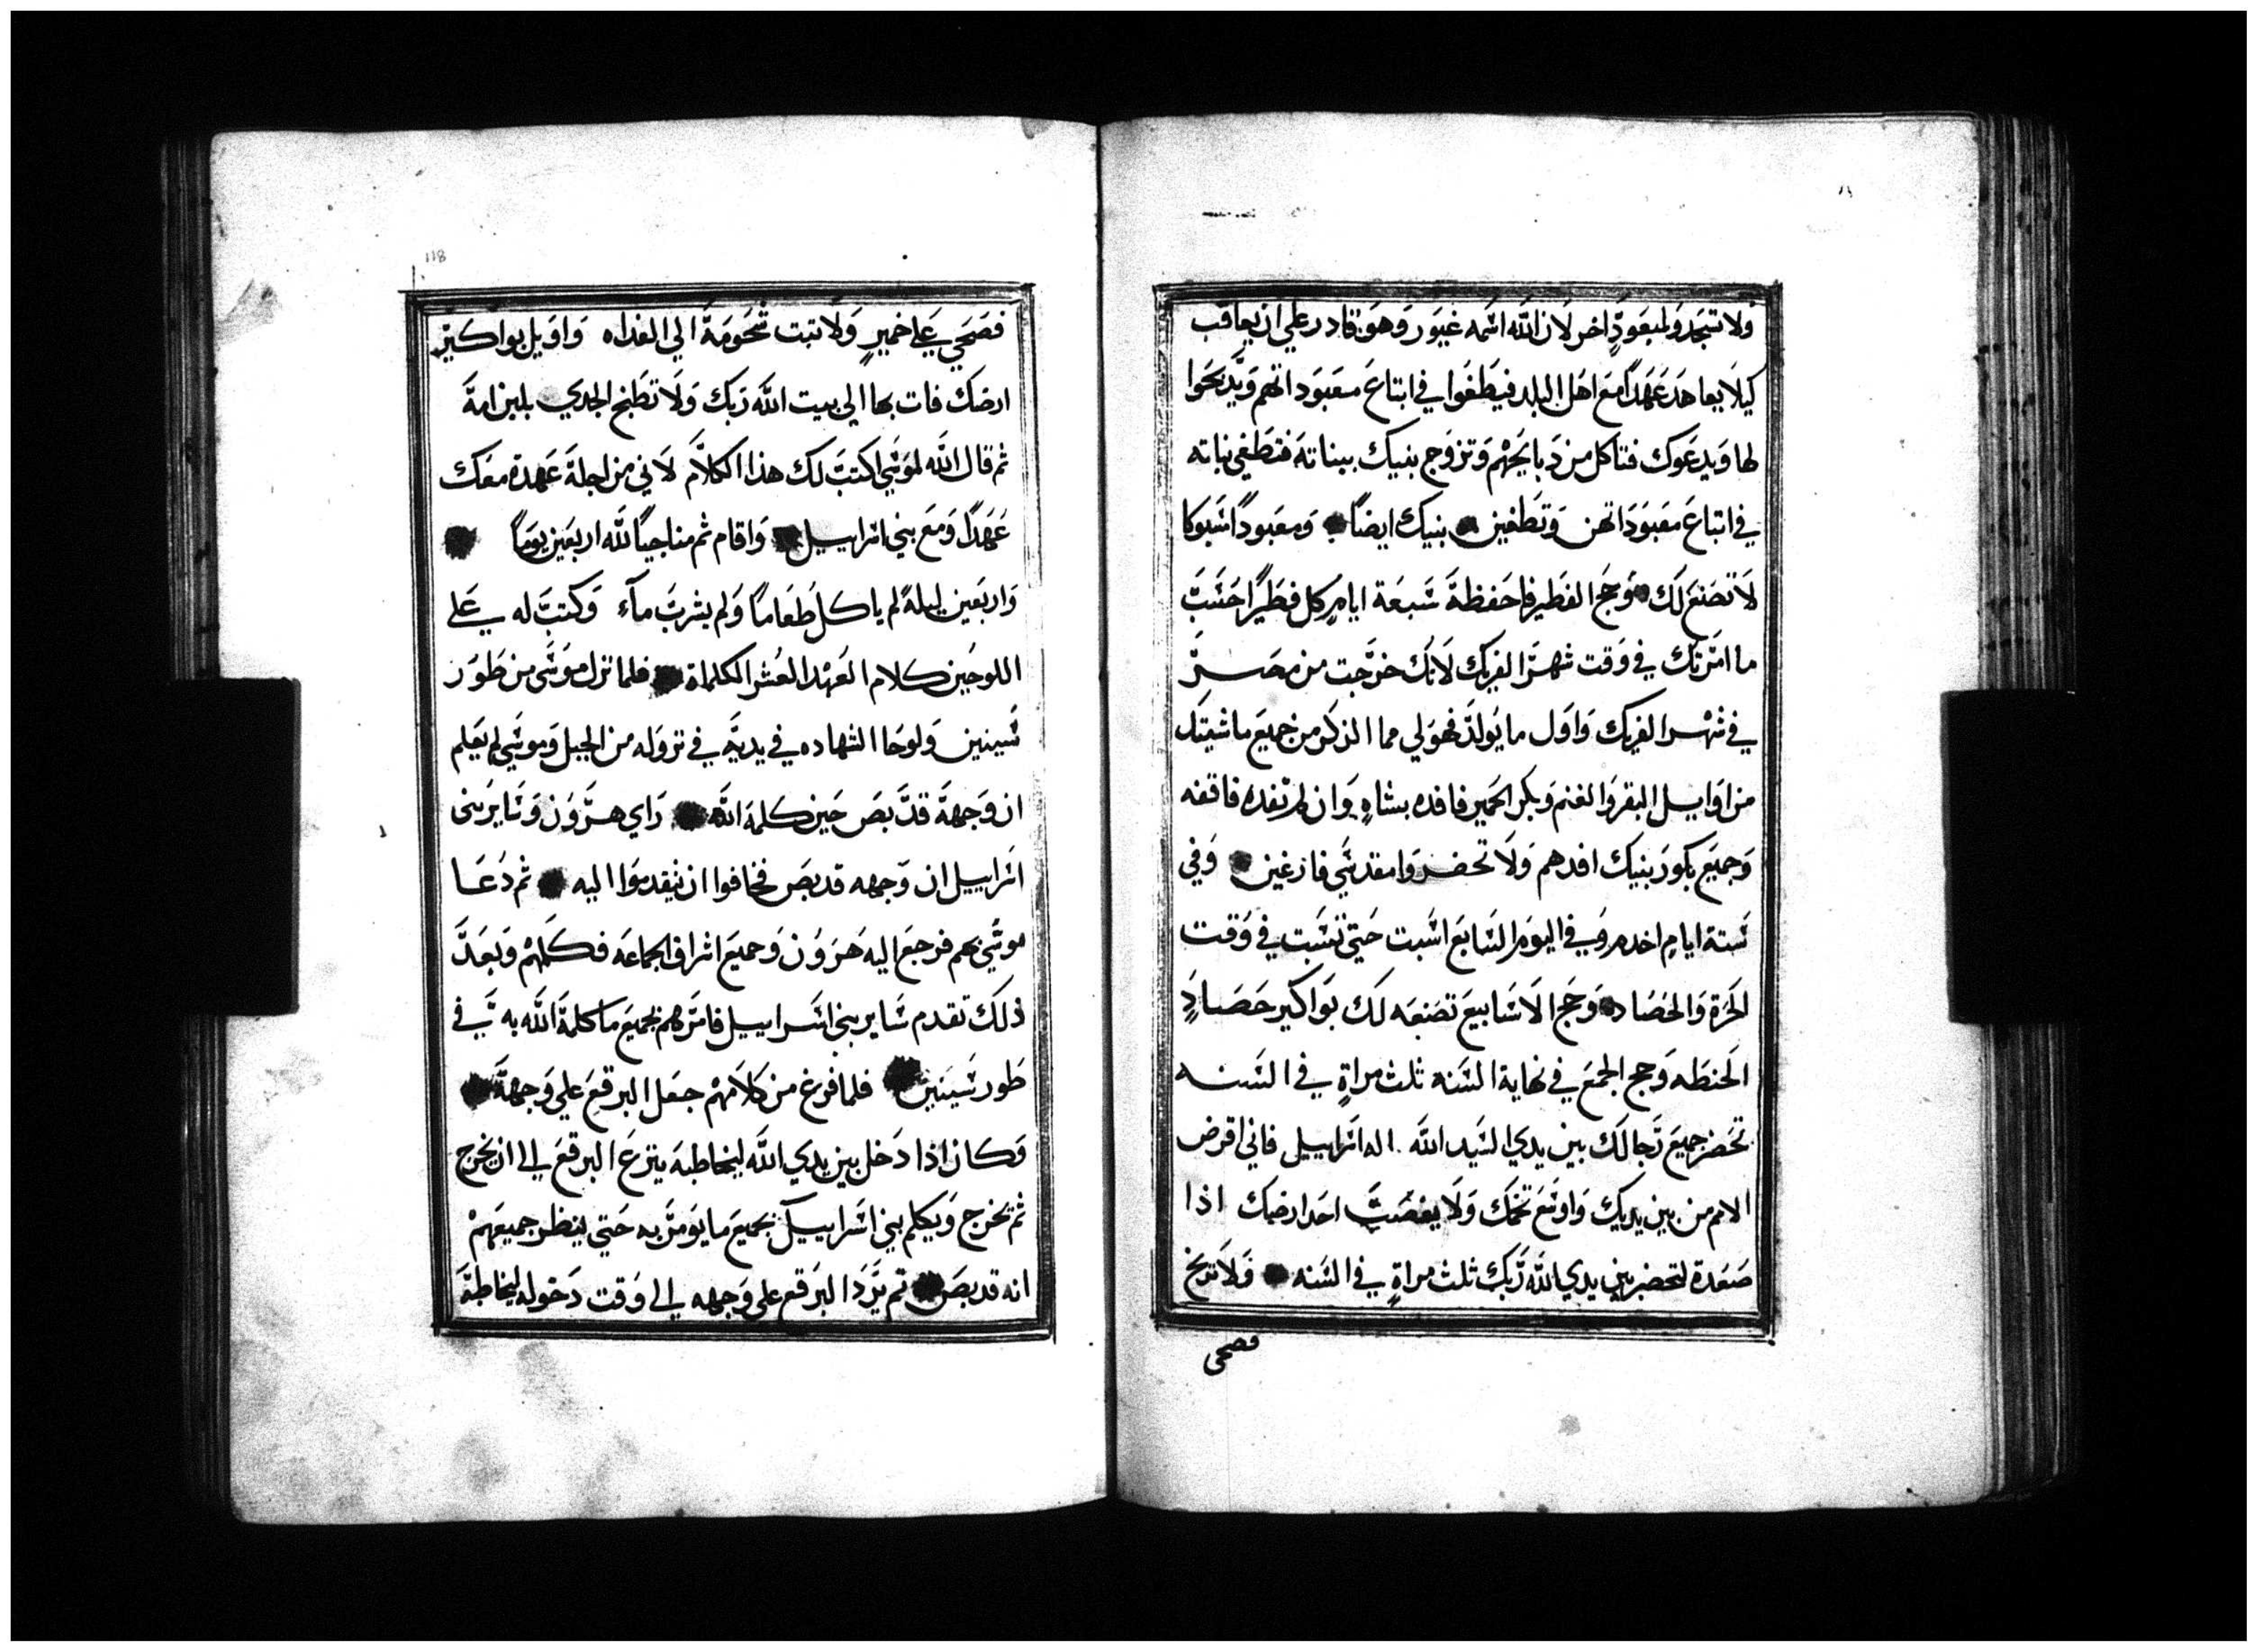 ولا تسجد ولمعبودٍ اخر لان الله اسمه غيور وهو قادر علي ان يعاقب
كيلا يعاهد عهدًا مع اهل البلد فيطغوا في ابتاع معبوداتهم ويدبحوا
لها ويدعوك فتاكل من دبايحهم وتزوج بنيك ببناته فتطغي بناته
في اتباع معبوداتهن وتطغين بنيك ايضًا ومعبودًا مسبوكا
لا تصنع لك وحج الفطير فاحفظة سبعة ايامٍ كل فطيرًا حسب
ما امرتك في وقت شهر الفريك لانك خرجت من مصر
في شهر الفريك واول ما يولد فهو لي مما الذكر من جميع ماشيتك
من اوايل البقر والغنم وبكر الحمير فافده بشاهٍ وان لم تفده فاقفه
وجميع بكور بنيك افدهم ولا تحضروا مقدسي فارغين وفي
ستة ايامٍ اخدم وفي اليوم السابع اسبت حتي تسبت في وقت
الحرة والحصاد وحج الاسابيع تصنعه لك بواكير حصادٍ
الحنطه وحج الجمع في نهاية السنه ثلث مراةٍ في السنه
تحضر جميع رجالك بين يدي السيد الله اله اسراييل فاني اقرض
الامم من بين يديك واوسع تخمك ولا يغضب احد ارضك اذا
صعدة لتحضر بين يدي الله ربك ثلث مراةٍ في السنه ولا تدبح
فصحي
118
فصحي علي خميرٍ ولا تبت شحومة الي الغداه واويل بواكير
ارضك فات بها الي بيت الله ربك ولا تطبخ الجدي بلبن امة
ثم قال الله لموسي اكتب لك هذا الكلام لاني من اجلة عهدة معك
عهدًا ومع بني اسراييل واقام ثم مناجيًا لله اربعين يومًا
واربعين ليلةً لم ياكل طعامًا ولم يشرب مآء وكتب له علي
اللوحين كلام العهد العشر الكلماة فلما نزل موسي من طور
سينين ولوحا الشهاده في يدية في نزوله من الجبل وموسي لم يعلم
ان وجهة قد بص حين كلمة الله راي هرون وساير بني
اسراييل ان وجهه قد بص فخافوا ان يتقدموا اليه ثم دعا
موسي بهم فرجع اليه هرون وجميع اشراف الجماعه فكلمهم وبعد
ذلك تقدم ساير بني اسراييل فامرهم بجميع ما كلمة الله به في
طور سينين فلما فرغ من كلامهم جعل البرقع علي وجهة
وكان اذا دخل بين يدي الله ليخاطبة ينزع البرقع الي ان يخرج
ثم يخرج ويكلم بني اسراييل بجميع ما يومر به حتي ينظر جميعهم
انه قد بص ثم يرد البرقع علي وجهه الي وقت دخوله ليخاطبة